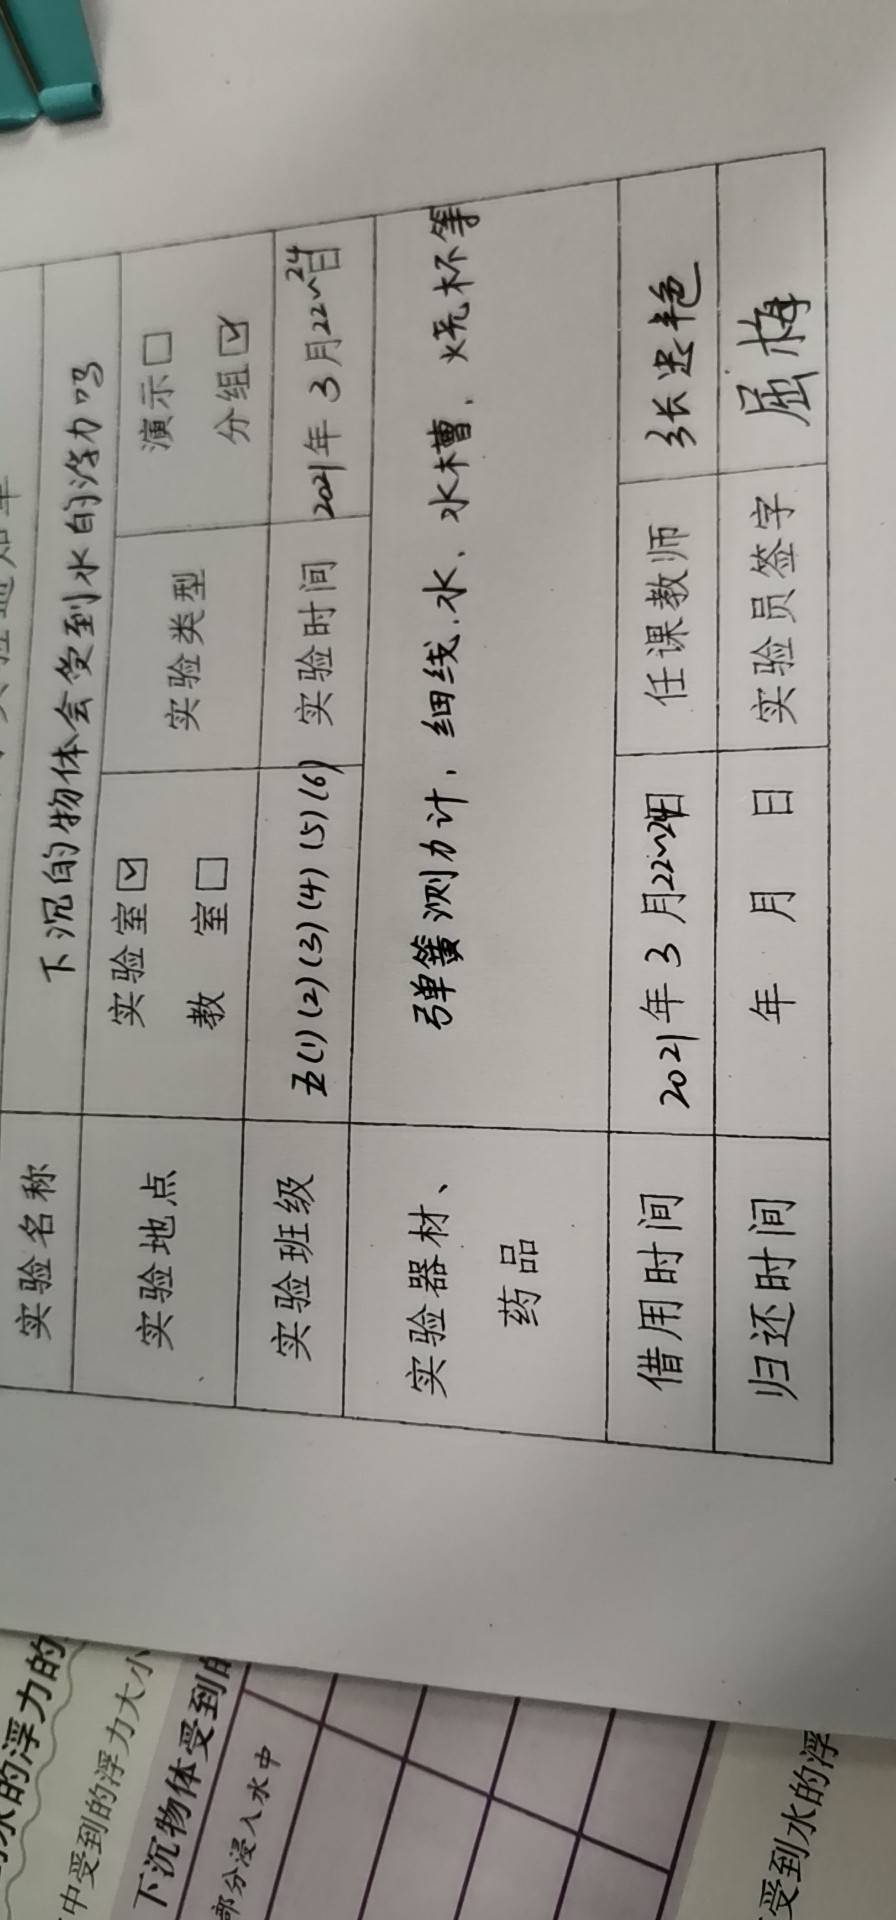 实验名称 下沉的物体会受到水的浮力吗
实验地点 实验室☑ 教 室□ 实验类型 演示□ 分组☑
实验班级 五(1)(2)(3)(4)(5)(6) 实验时间 2021年3月22~24日
实验器材、药品 弹簧测力计、细线、水、水槽、烧杯等
借用时间 2021年3月22~24日 任课教师 张忠艳
归还时间 年 月 日 实验员签字 屈梅
水的浮力的
中受到的浮力大小
下沉物体受到的
部分浸入水中
受到水的浮